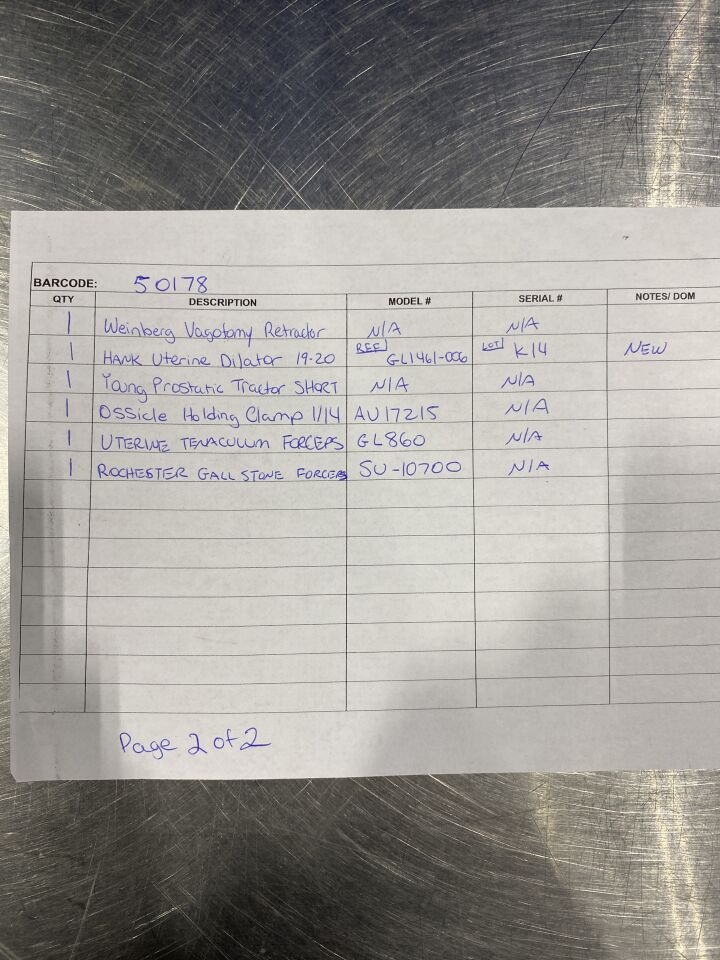 BARCODE: 50178
QTY DESCRIPTION MODEL # SERIAL # NOTES/ DOM
1 Weinberg Vagotomy Retractor N/A N/A
1 HANK Uterine Dilator 19-20 REF GL1461-006 LOT K14 NEW
1 Young Prostatic Tractor SHORT N/A N/A
1 OSSicle Holding Clamp 1/14 AU17215 N/A
1 UTERINE TENACULUM FORCEPS GL860 N/A
1 ROCHESTER GALL STONE FORCEPS SU-10700 N/A
Page 2 of 2